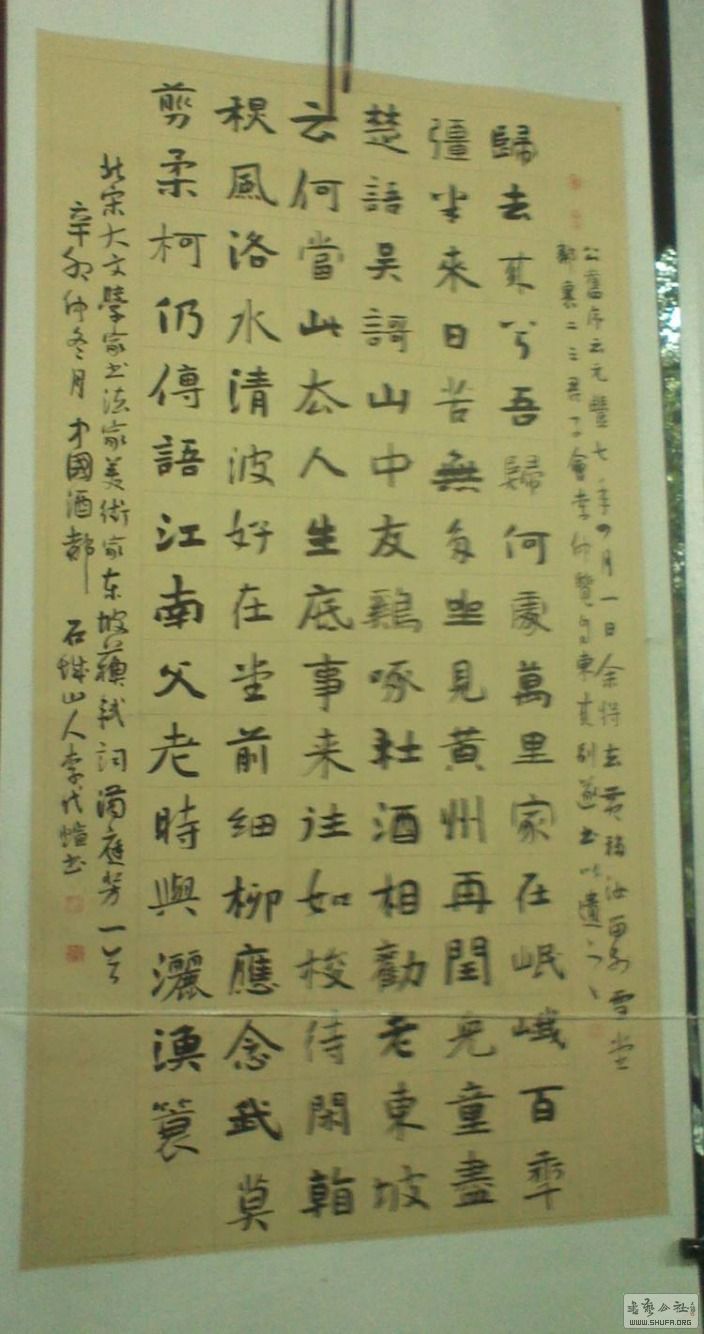 公舊序云元豐七年四月一日余将去黄移汝留别雪堂
鄰裏二三君子會李仲覽自東来别遂書以遺之
歸去来兮吾歸何處萬里家在岷峨百年
彊半來日苦無多坐見黄州再閏兒童盡
楚語吴謌山中友雞啄社酒相勸老東坡
云何當此去人生底事来往如梭待閑看
秋風洛水清波好在堂前細柳應念我莫
剪柔柯仍傳語江南父老時與灑漁簑
北宋大文學家书法家美術家东坡蘇軾詞满庭芳一首
辛卯仲冬月 中國酒都 石城山人李代书
書藝公社
WWW.SHUFA.ORG